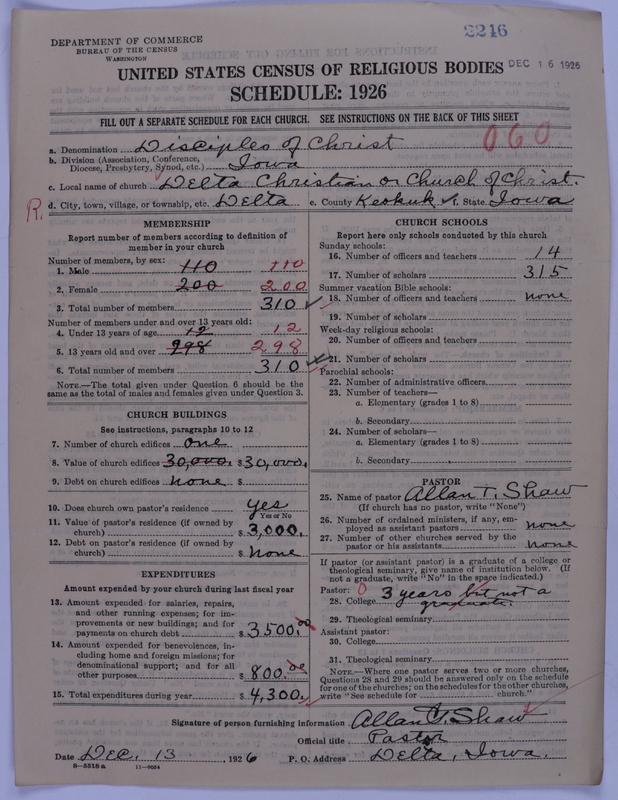 2246
DEPARTMENT OF COMMERCE
BUREAU OF THE CENSUS
WASHINGTON
DEC 16 1926
UNITED STATES CENSUS OF RELIGIOUS BODIES
SCHEDULE: 1926
FILL OUT A SEPARATE SCHEDULE FOR EACH CHURCH. SEE INSTRUCTIONS ON THE BACK OF THIS SHEET
060
a. Denomination Disciples of Christ
b. Division (Association, Conference, Diocese, Presbytery, Synod, etc.) Iowa
c. Local name of church Delta Christian or Church of Christ.
R. d. City, town, village, or township, etc. Delta e. County Keokuk f. State Iowa
MEMBERSHIP
Report number of members according to definition of
member in your church
Number of members, by sex:
1. Male 110 110
2. Female 200 200
3. Total number of members 310
Number of members under and over 13 years old:
4. Under 13 years of age 12 12
5. 13 years old and over 298 298
6. Total number of members 310
NOTE.—The total given under Question 6 should be
same as the total of males and females given under Question 3.
CHURCH BUILDINGS
See instructions, paragraphs 10 to 12
7. Number of church edifices one
8. Value of church edifices 30,000. $30,000.
9. Debt on church edifices none $
10. Does church own pastor's residence yes
Yes or No
11. Value of pastor's residence (if owned by
church) $ 3,000.
12. Debt on pastor's residence (if owned by
church) $ None
EXPENDITURES
Amount expended by your church during last fiscal year
13. Amount expended for salaries, repairs,
and other running expenses; for im-
provements or new buildings; and for
payments on church debt $ 3500.00
14. Amount expended for benevolences, in-
cluding home and foreign missions; for
denominational support; and for all
other purposes $ 800.00
15. Total expenditures during year $ 4,300.
CHURCH SCHOOLS
Report here only schools conducted by this church
Sunday schools:
16. Number of officers and teachers 14
17. Number of scholars 315
Summer vacation Bible schools:
18. Number of officers and teachers none
19. Number of scholars
Week-day religious schools:
20. Number of officers and teachers
21. Number of scholars
Parochial schools:
22. Number of administrative officers
23. Number of teachers—
a. Elementary (grades 1 to 8)
b. Secondary
24. Number of scholars—
a. Elementary (grades 1 to 8)
b. Secondary
PASTOR
25. Name of pastor Allan T. Shaw
(If church has no pastor, write "None")
26. Number of ordained ministers, if any, em-
ployed as assistant pastors none
27. Number of other churches served by the
pastor or his assistants none
If pastor (or assistant pastor) is a graduate of a college or
theological seminary, give name of institution below. (If
not a graduate, write "No" in the space indicated.)
Pastor: 0
28. College 3 years but not a
graduate.
29. Theological seminary
Assistant pastor:
30. College
31. Theological seminary
NOTE.—Where one pastor serves two or more churches,
Questions 28 and 29 should be answered only on the schedule
for one of the churches; on the schedules for the other churches,
write "See schedule for church."
Signature of person furnishing information Allan T. Shaw
Official title Pastor
Date Dec. 13, 1926 P. O. Address Delta, Iowa.
8—5518 a 11—9054